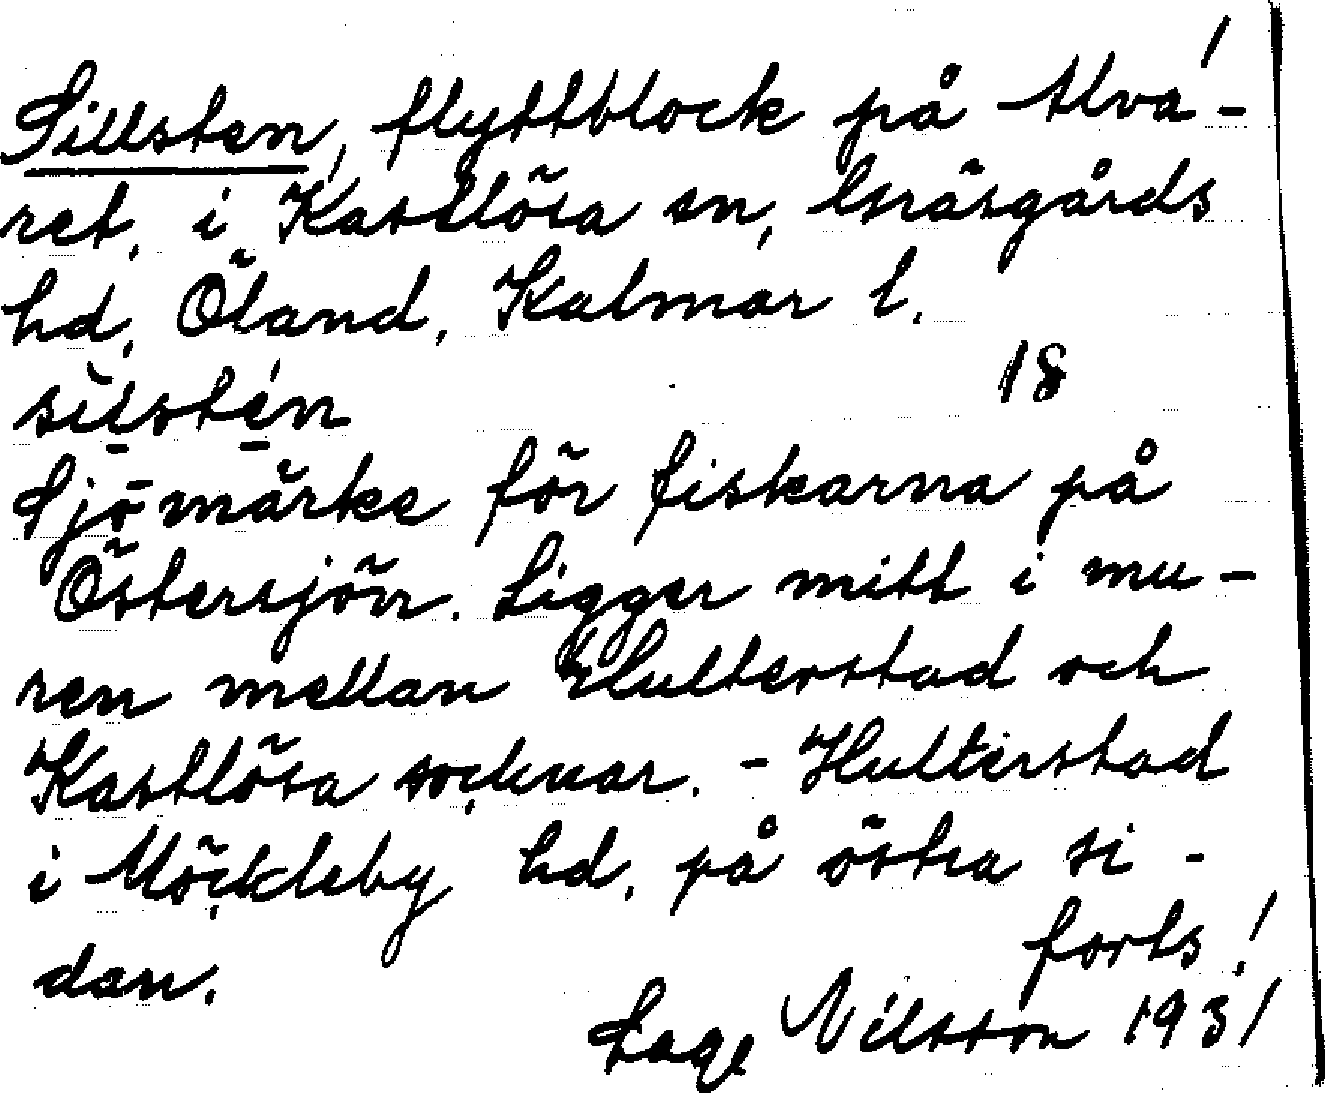 Sillsten, flyttblock på Alva-
ret, i Kastlösa sn, Gräsgårds
hd, Öland, Kalmar l.
sìlsté̱n 18
Sjömärke för fiskarna på
Östersjön. Ligger mitt i mu-
ren mellan Hulterstad och
Kastlösa socknar. - Hulterstad
i Möckleby hd. på östra si-
dan. forts!
Lage Nilsson 1931